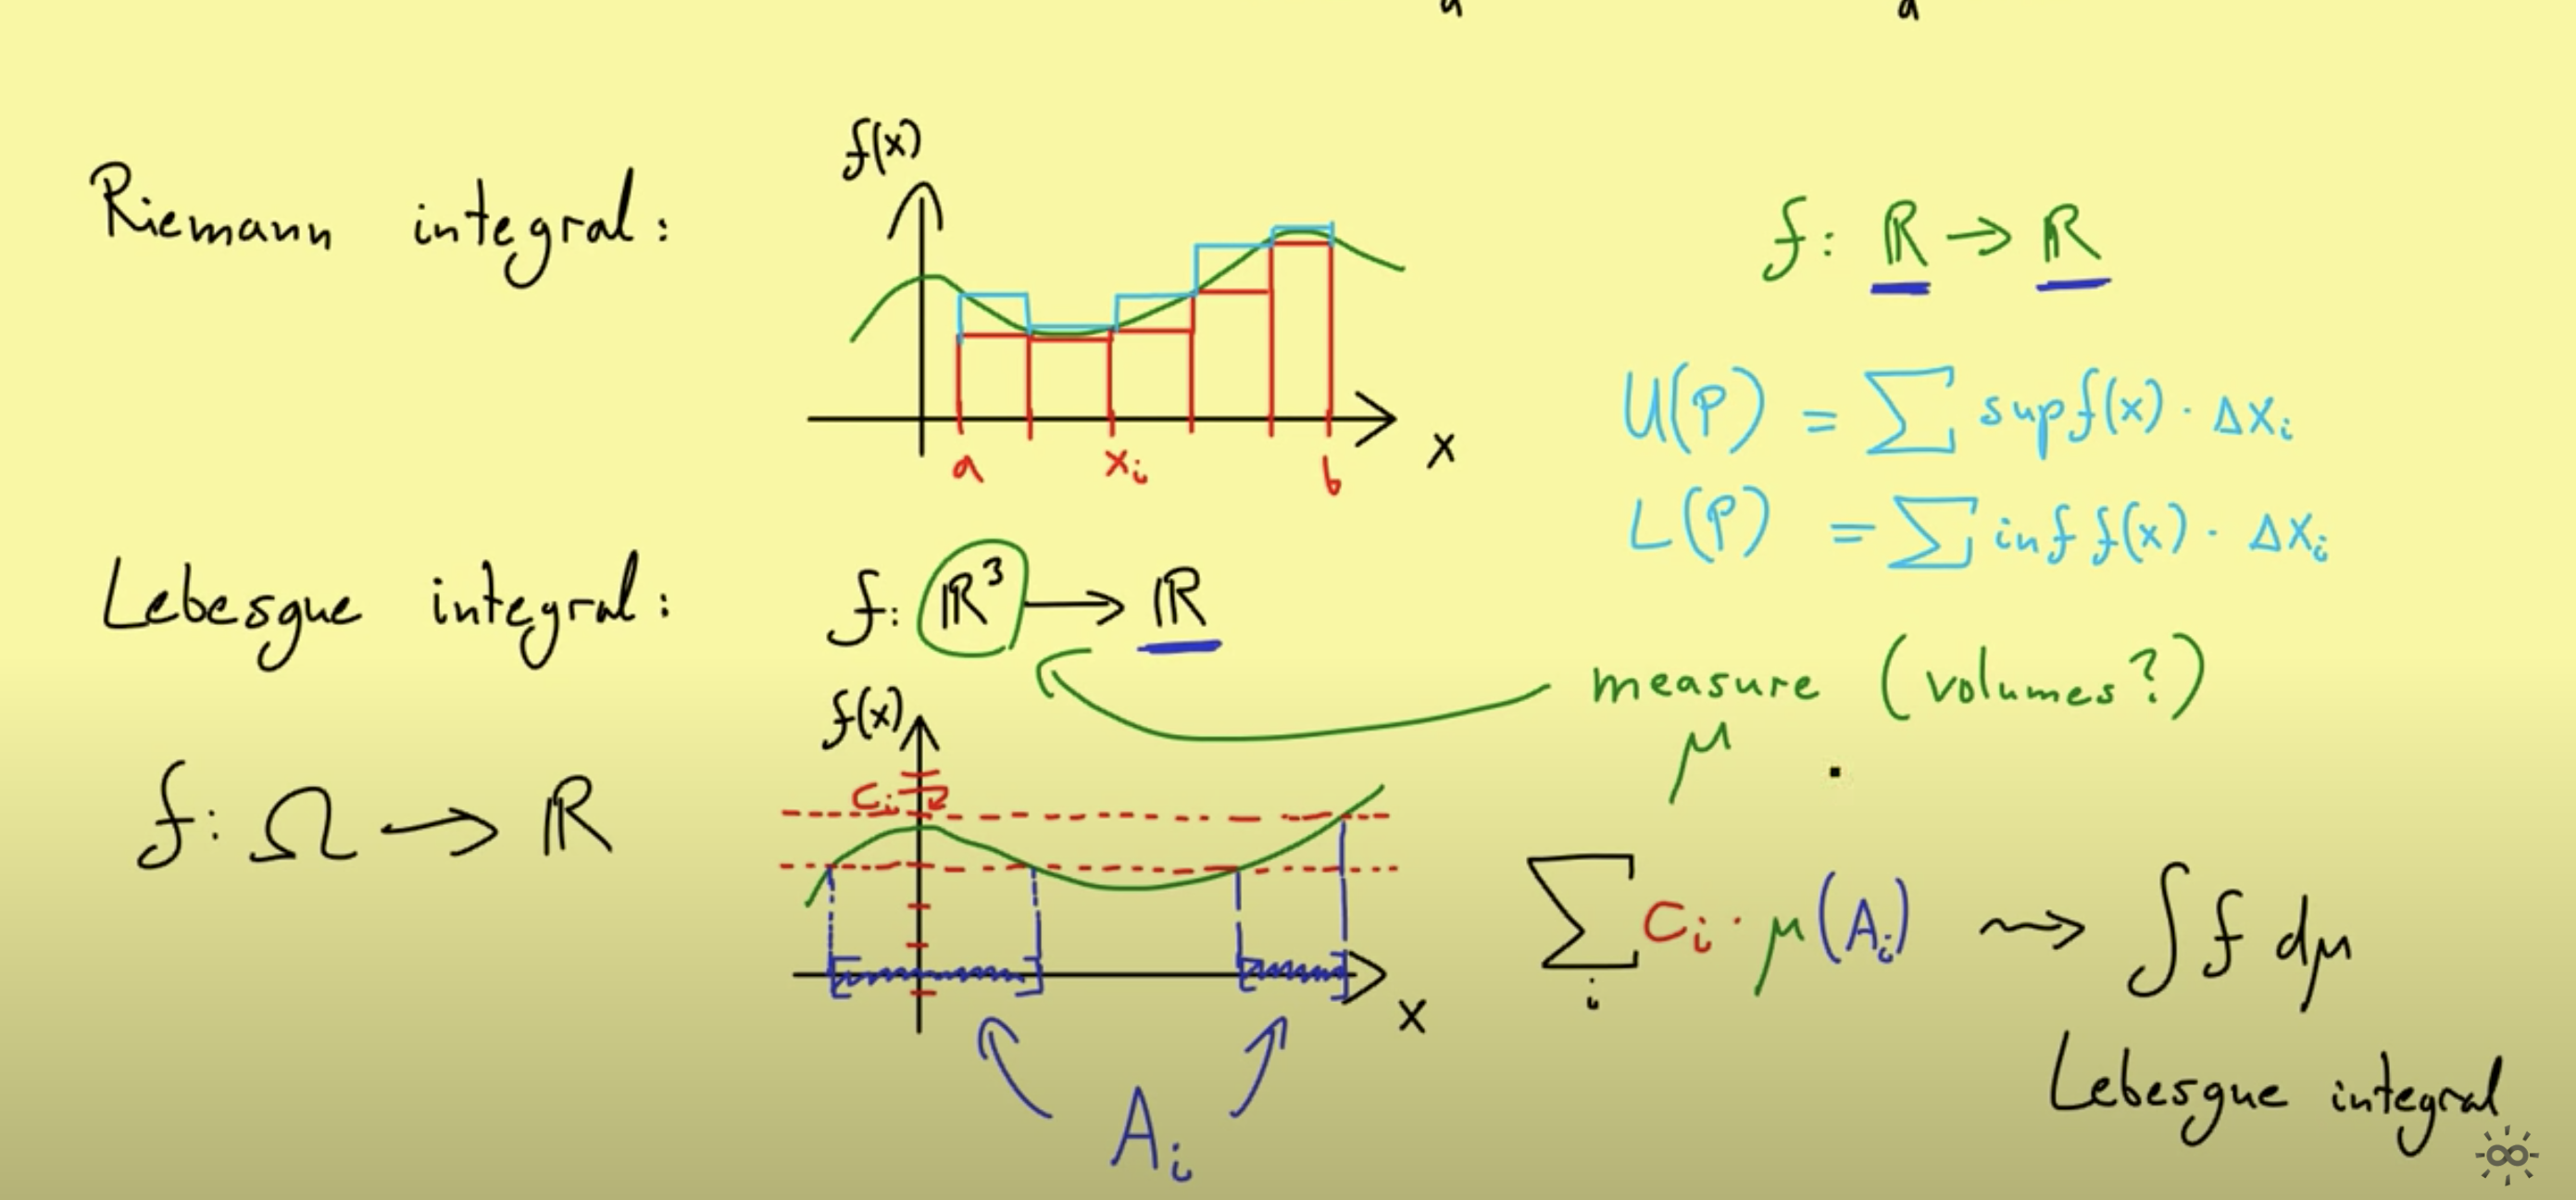 Riemann integral:
f(x)
a
x_i
b
x
f: ℝ → ℝ
U(P) = ∑ sup f(x) · Δx_i
L(P) = ∑ inf f(x) · Δx_i
Lebesgue integral:
f: ℝ³ → ℝ
measure (volumes?)
μ
f: Ω → ℝ
f(x)
c_i
x
A_i
∑_i c_i · μ(A_i) ⇝ ∫ f dμ
Lebesgue integral